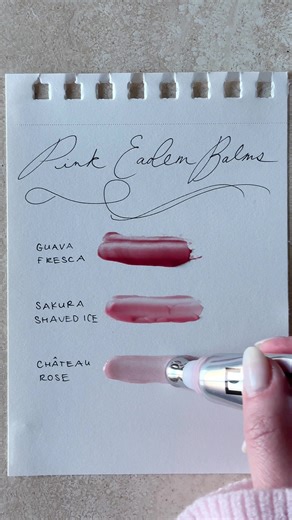 Pink Eadem Balms
GUAVA
FRESCA
SAKURA
SHAVED ICE
CHÂTEAU
ROSE